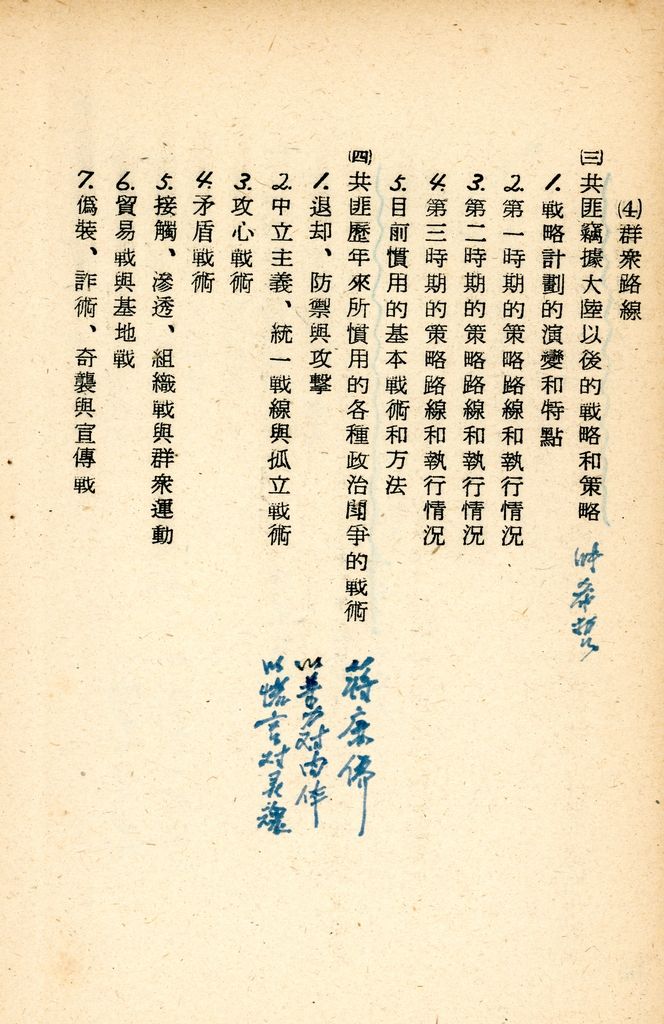 (4)群衆路線
㈢共匪竊據大陸以後的戰略和策略
1.戰略計劃的演變和特點
2.第一時期的策略路線和執行情況
3.第二時期的策略路線和執行情況
4.第三時期的策略路線和執行情況
5.目前慣用的基本戰術和方法
㈣共匪歷年來所慣用的各種政治鬪爭的戰術
1.退却、防禦與攻擊
2.中立主義、統一戰線與孤立戰術
3.攻心戰術
4.矛盾戰術
5.接觸、滲透、組織戰與群衆運動
6.貿易戰與基地戰
7.偽裝、詐術、奇襲與宣傳戰
蔣廉儒
以 对肉体
以 言对灵魂